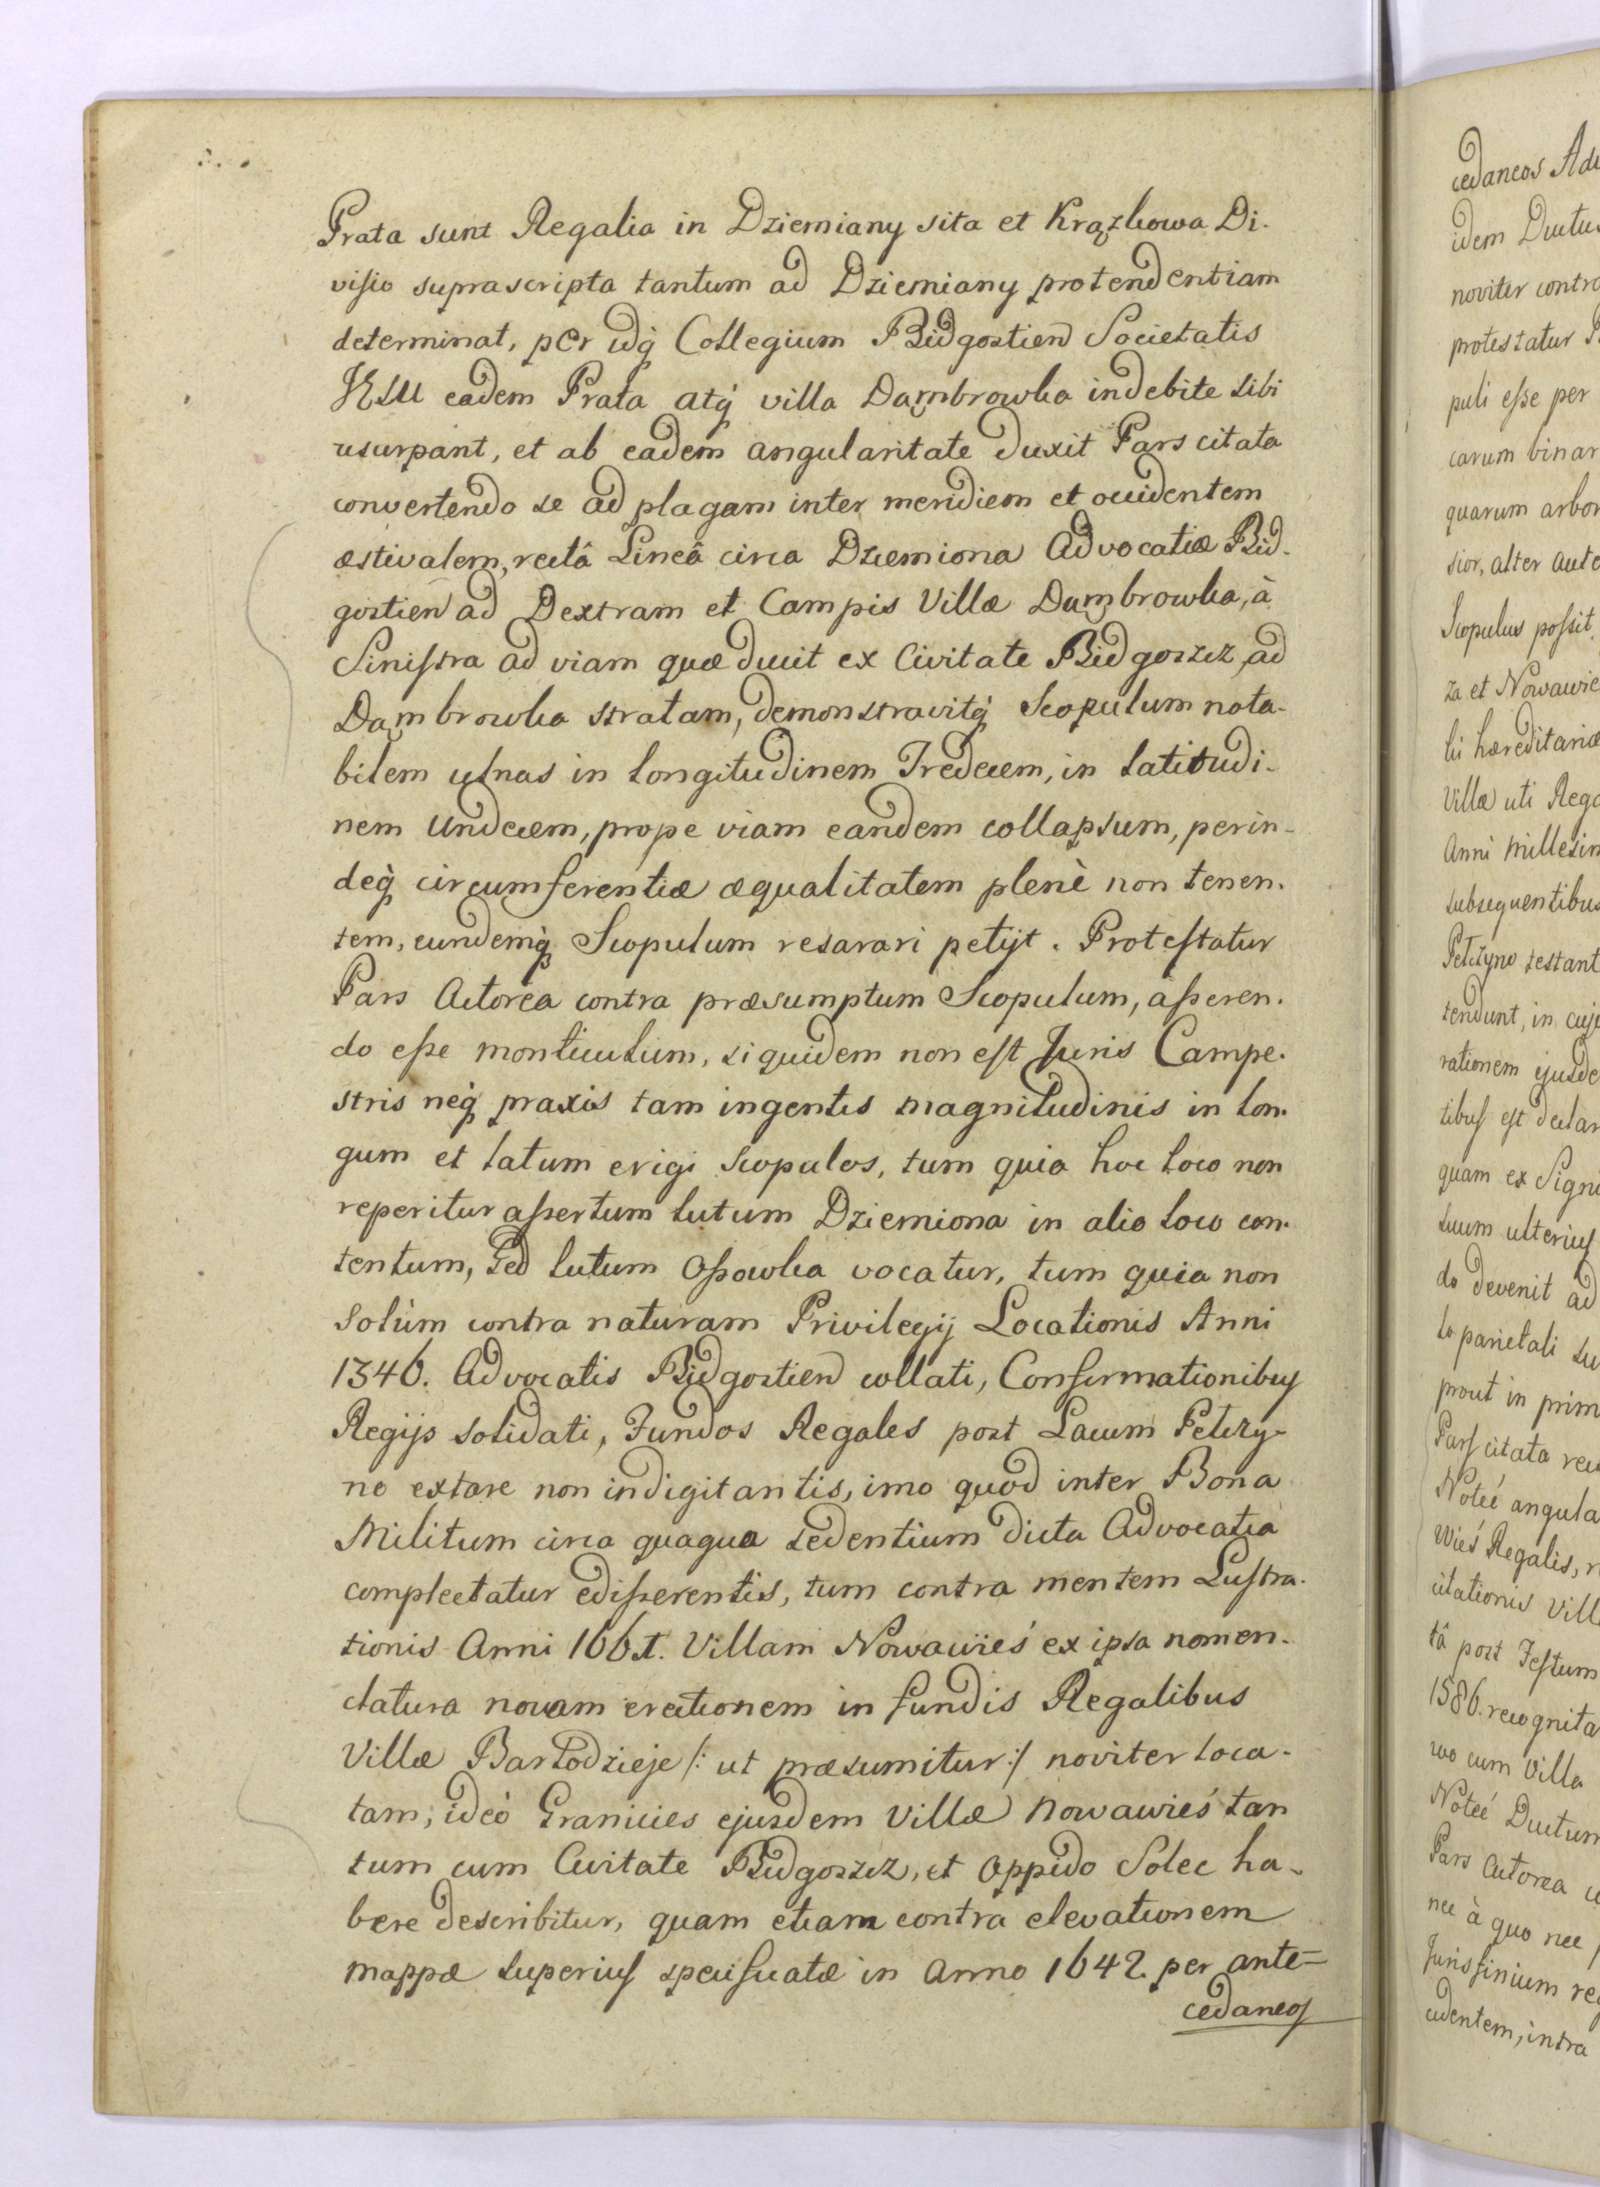 Prata sunt Regalia in Dziemiany sita et Krązkowa Di-
visio suprascripta tantum ad Dziemiany protendentiam
determinat, per idq́ Collegium Bidgostien Societatis
JESU eadem Prata atq́ villa Dąmbrowka indebite sibi
usurpant, et ab eadem angularitate duxit Pars citata
convertendo se ad plagam inter meridiem et occidentem
æstivalem, rectâ Lineâ circa Dziemiona Advocatiæ Bid-
gostien ad Dextram et Campis Villæ Dąmbrowka, à
Sinistra ad viam quæ ducit ex Civitate Bidgoszcz, ad
Dąmbrowka stratam, demonstravitq́ Scopulum nota-
bilem ulnas in longitudinem Tredecem, in latitudi-
nem Undecem, prope viam eandem collapsum, perin-
deq́ circumferentiæ æqualitatem plenè non tenen-
tem, eundemq́ Scopulum resarari petijt. Protestatur
Pars Actorea contra præsumptum Scopulum, asseren-
do esse monticulum, siquidem non est Juris Campe-
stris neq́ praxis tam ingentis magnitudinis in lon-
gum et latum erigi scopulos, tum quia hoc loco non
reperitur assertum lutum Dziemiona in alio loco con-
tentum, sed lutum Ossowka vocatur, tum quia non
solùm contra naturam Privilegij Locationis Anni
1346. Advocatis Bidgostien collati, Confirmationibus
Regijs solidati, Fundos Regales post Lacum Petczy-
no extare non indigitantis, imo quod inter Bona
Militum circa quaqua sedentium dicta Advocatia
complectatur edisserentis, tum contra mentem Lustra-
tionis Anni 1661. Villam Nowawieś ex ipsa nomen-
clatura novam erectionem in fundis Regalibus
Villæ Bartodzieje /: ut præsumitur :/ noviter loca-
tam, ideò Granicies ejusdem Villæ Nowawieś tan
tum cum Civitate Bidgoszcz, et Oppido Solec ha-
bere describitur, quam etiam contra elevationem
mappæ superius specificatæ in Anno 1642. per ante-
cedaneos
cedaneos
idem Ductus
noviter contra
protestatur
puli esse per
carum binar
quarum arbor
sior, alter aute
Scopulus possit
za et Nowawie
hæreditariæ
Villæ uti Rega
Anni Millesim
subsequentibus
Petczyno testant
tendunt, in cuj
rationem ejusde
tibus est declar
quam ex Signi
ulterius
do devenit ad
parietali
prout in prim
Pars citata
Noteć angula
wieś Regalis,
citationis Vill
tâ post Festum
1586. recognita
wo cum Villa
Noteć Ductum
Pars Actorea
nec à quo nec
Juris finium
cidentem, intra